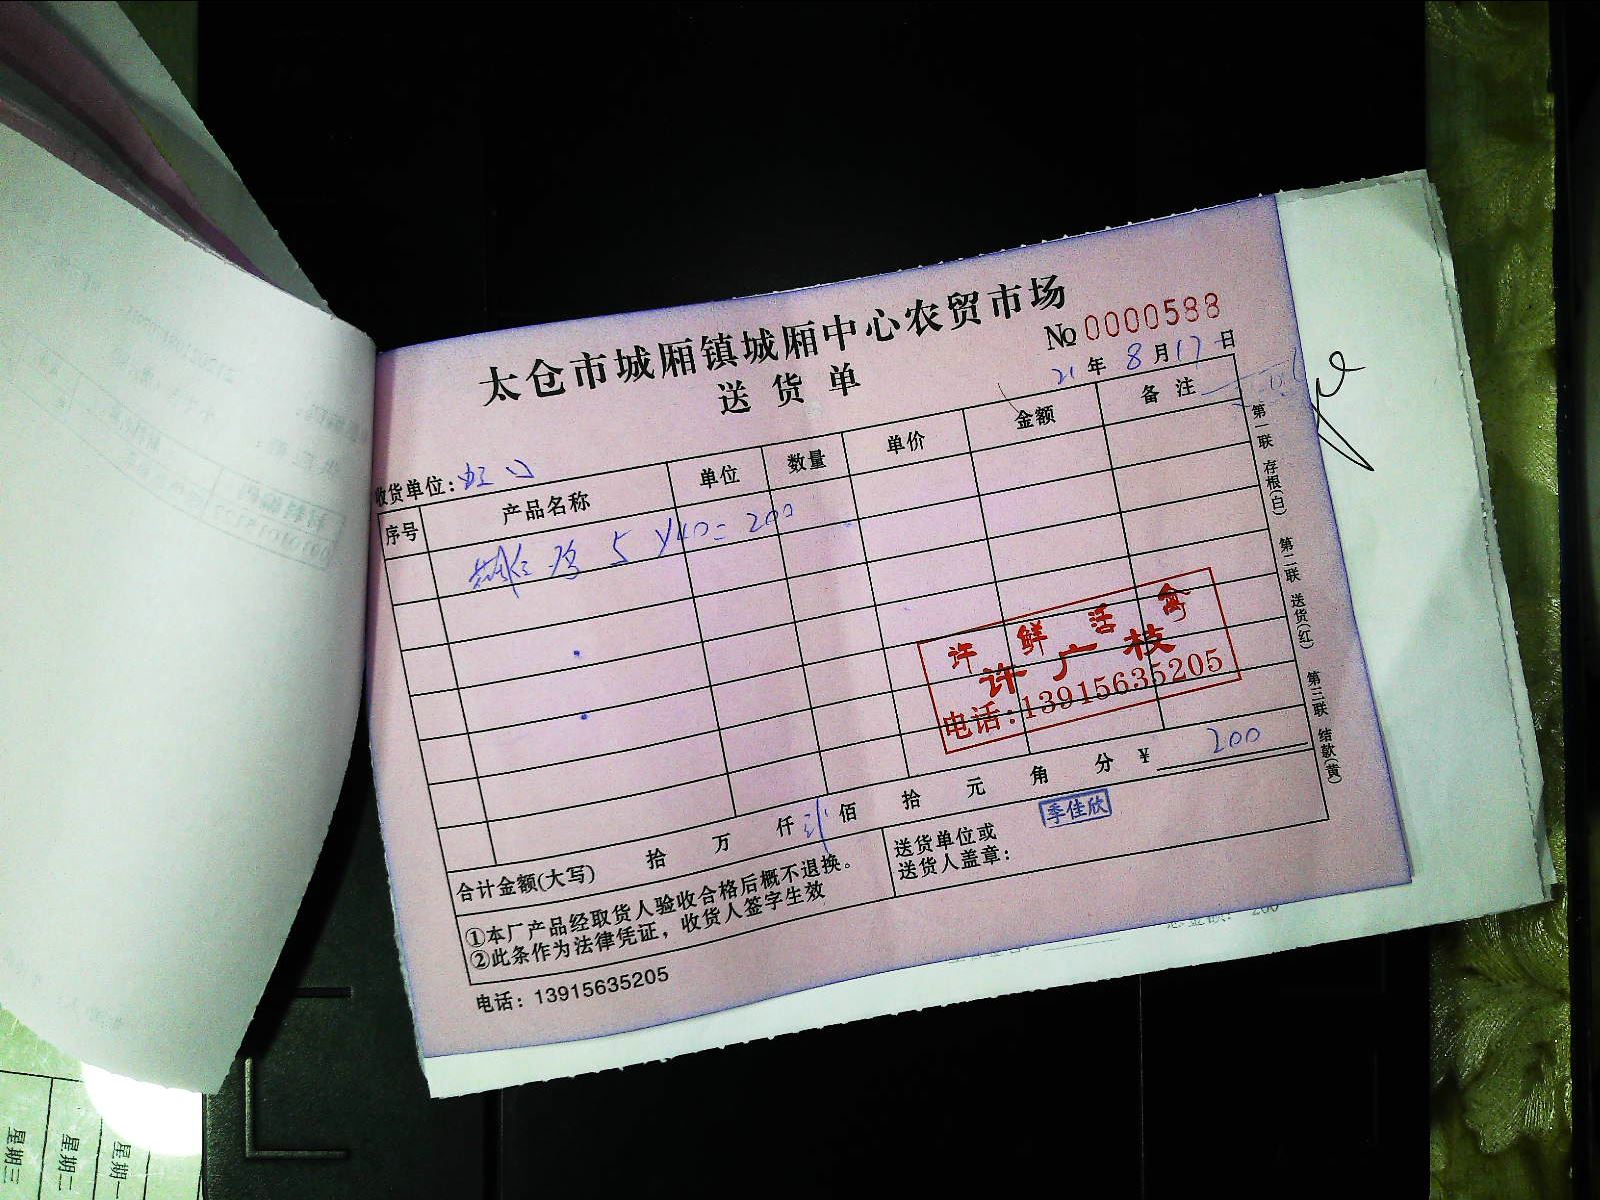 太仓市城厢镇城厢中心农贸市场
送货单
No 0000588
21年8月17日
收货单位:虹口
序号 产品名称 单位 数量 单价 金额 备注
鸡 5 ×40=200
许鲜活禽
许广枝
电话:13915635205
合计金额(大写) 拾 万 仟 佰 拾 元 角 分 ¥ 200
①本厂产品经取货人验收合格后概不退换。
②此条作为法律凭证，收货人签字生效
送货单位或
送货人盖章:
季佳欣
电话: 13915635205
第一联 存根(白)
第二联 送货(红)
第三联 结款(黄)
星期一
星期二
星期三